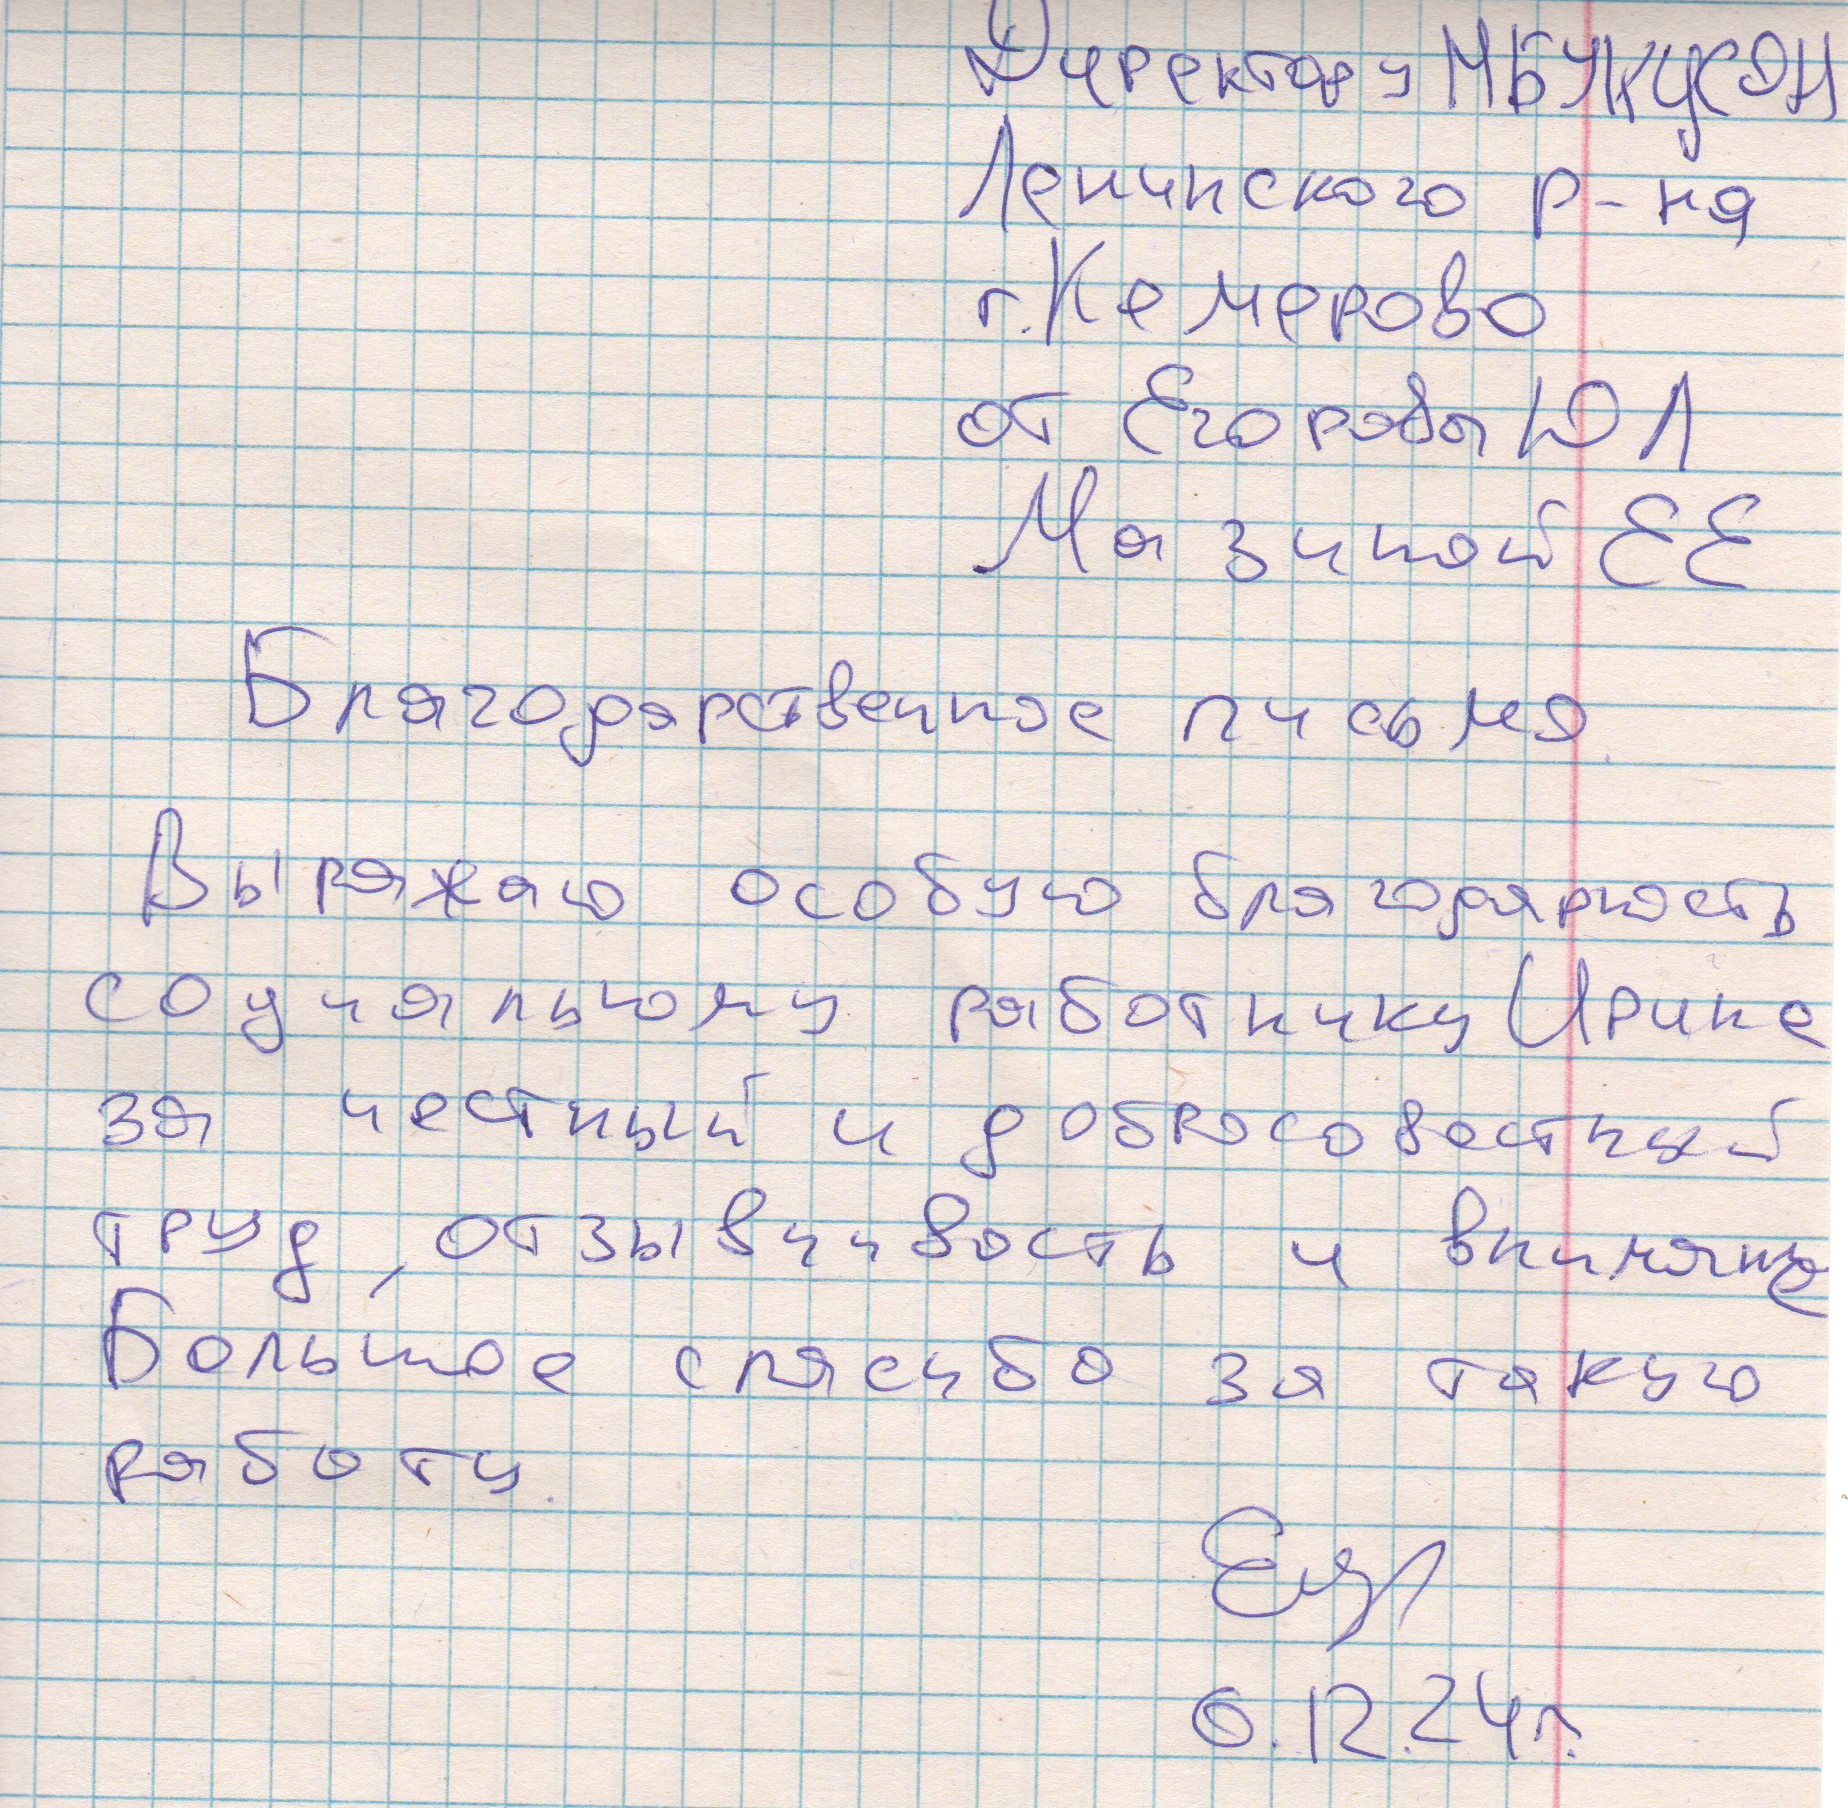 Директору МБУ КЦСОН
Ленинского р-на
г. Кемерово
от Егоровы Ю Л
Мазиной Е Е
Благодарственное письмо.
Выражаю особую благодарность
социальному работнику Ирине
за честный и добросовестный
труд, отзывчивость и внимание
Большое спасибо за такую
работу.
6.12.24 г.